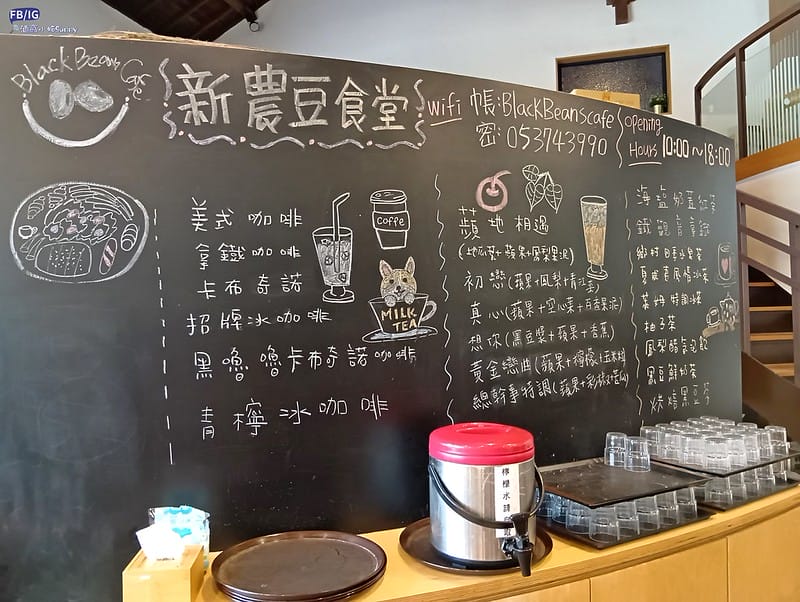 FB/IG
Black Beans Cafe
新農豆食堂
wifi 帳:BlackBeanscafe
密:053743990
opening
Hours 10:00~18:00
美式咖啡
拿鐵咖啡
卡布奇諾
招牌冰咖啡
黑嚕嚕卡布奇諾咖啡
青檸冰咖啡
Coffe
MILK
TEA
蘋地相遇
(地瓜葉+蘋果+鳳梨果泥)
初戀(蘋果+鳳梨+青江菜)
真心(蘋果+空心菜+百香果泥)
想你(黑豆漿+蘋果+香蕉)
黃金戀曲(蘋果+檸檬+玉米粒
總幹事特調(蘋果+彩椒+
海鹽奶蓋紅茶
鐵觀音拿鐵
鄉村日式水果茶
夏威夷風情冰茶
萊姆特調冰茶
柚子茶
鳳梨醋氣泡飲
黑豆鮮奶茶
烘焙黑豆茶
檸檬水請自取